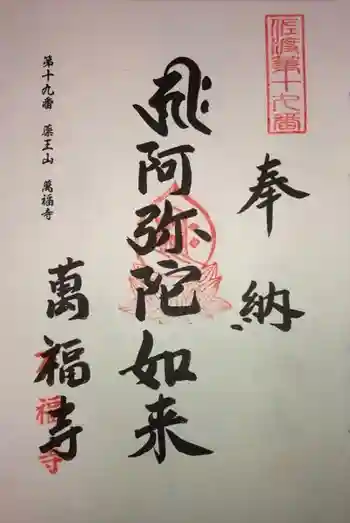 佐渡第十九番
奉納
阿弥陀如来
第十九番 薬王山 萬福寺
萬福寺